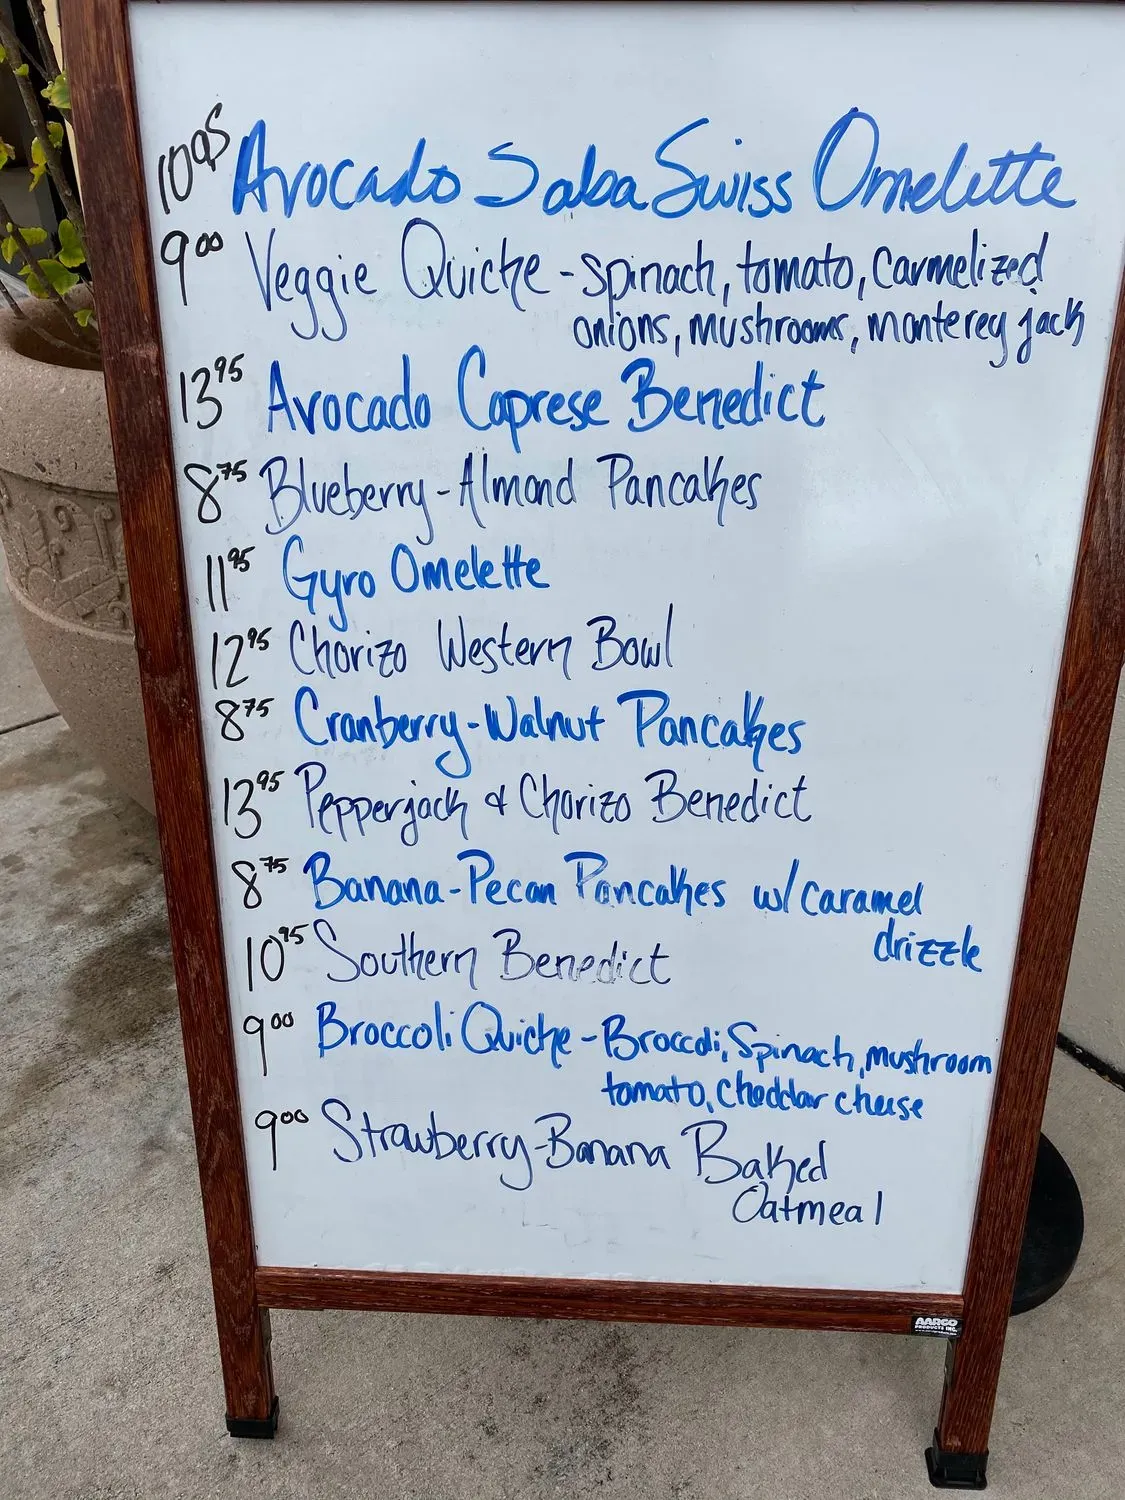 10.95 Avocado Salsa Swiss Omelette
9.00 Veggie Quiche - spinach, tomato, carmelized
onions, mushrooms, monterey jack
13.95 Avocado Caprese Benedict
8.75 Blueberry-Almond Pancakes
11.95 Gyro Omelette
12.95 Chorizo Western Bowl
8.75 Cranberry-Walnut Pancakes
13.95 Pepperjack & Chorizo Benedict
8.75 Banana-Pecan Pancakes w/ caramel
drizzle
10.95 Southern Benedict
9.00 Broccoli Quiche - Broccoli, Spinach, mushroom
tomato, cheddar cheese
9.00 Strawberry-Banana Baked
Oatmeal
AARCO
PRODUCTS INC.